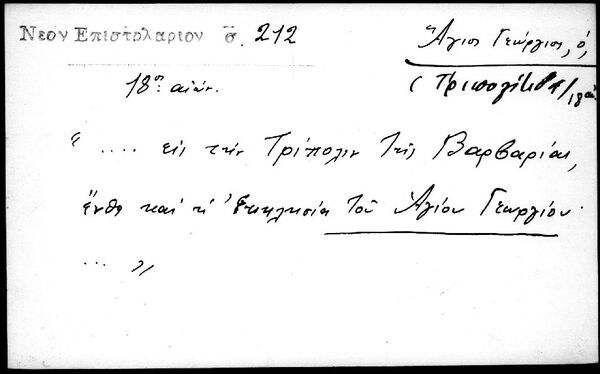 Νεον Επιστολαριον σ. 212
Ἅγιος Γεώργιος, ὁ,
18ος αἰών.
" .... εἰς τὴν Τρίπολιν τῆς Βαρβαρίας,
ἔνθα καὶ ἡ Ἐκκλησία τοῦ Ἁγίου Γεωργίου.
... "